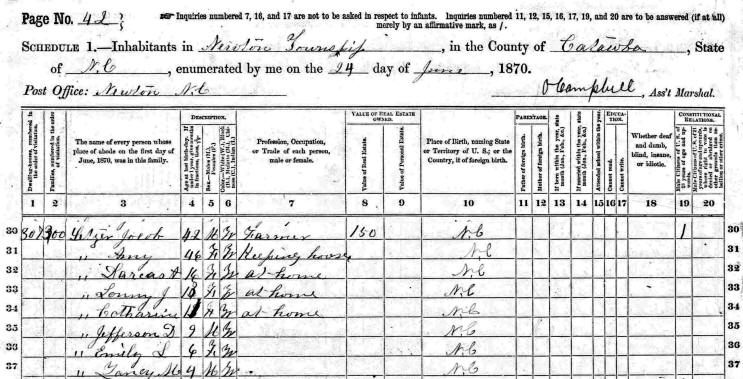 Page No. 42 } ☞ Inquiries numbered 7, 16, and 17 are not to be asked in respect to infants. Inquiries numbered 11, 12, 15, 16, 17, 19, and 20 are to be answered (if at all)
merely by an affirmative mark, as /.
SCHEDULE 1.—Inhabitants in Newton Township, in the County of Catawba, State
of N.C, enumerated by me on the 24 day of June, 1870.
Post Office: Newton N.C Campbell, Ass't Marshal.
DESCRIPTION. VALUE OF REAL ESTATE OWNED. PARENTAGE. EDUCATION. CONSTITUTIONAL RELATIONS.
Dwelling-houses, numbered in the order of visitation.
Families, numbered in the order of visitation.
The name of every person whose place of abode on the first day of June, 1870, was in this family.
Profession, Occupation, or Trade of each person, male or female.
Value of Real Estate.
Value of Personal Estate.
Place of Birth, naming State or Territory of U. S.; or the Country, if of foreign birth.
Father of foreign birth.
Mother of foreign birth.
If born within the year, state month (Jan., Feb., &c.)
If married within the year, state month (Jan., Feb., &c.)
Attended school within the year.
Cannot read.
Cannot write.
Whether deaf and dumb, blind, insane, or idiotic.
1 2 3 4 5 6 7 8 9 10 11 12 13 14 15 16 17 18 19 20
30 Jacob 42 M W Farmer 150 N.C 1 30
31 " Amy 46 F W Keeping house N.C 31
32 " 16 F W at home N.C 32
33 " J F W at home N.C 33
34 " Catharine F W at home N.C 34
35 " Jefferson D 9 M W N.C 35
36 " Emily L 6 F W N.C 36
37 " Yancy M 4 M W N.C 37